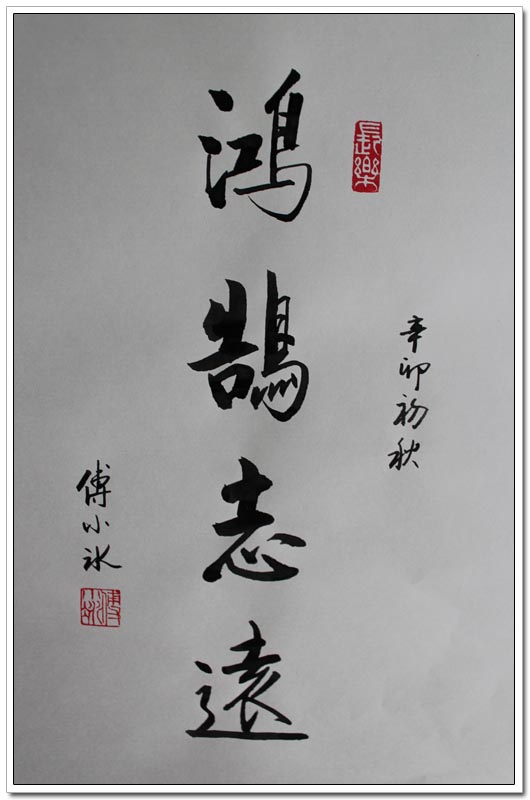 長樂
辛卯初秋
鴻鵠志遠
傅小冰